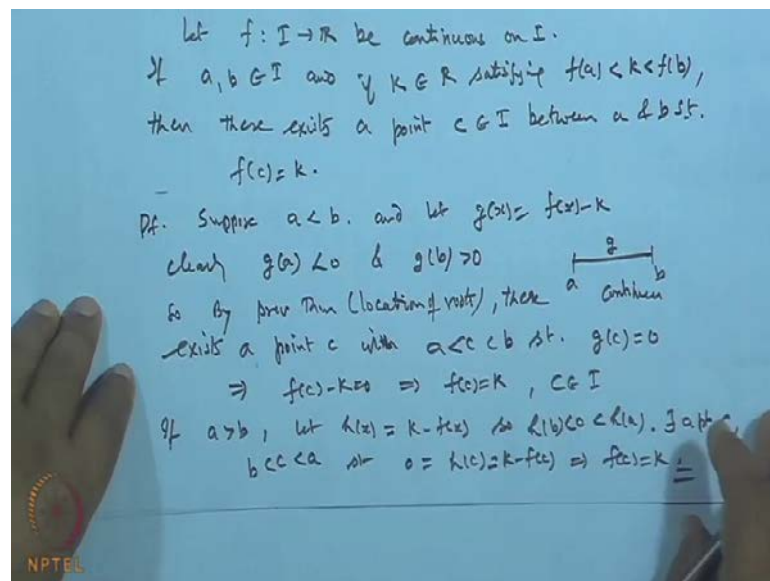 Let f : I → R be continuous on I.
If a, b ∈ I and if K ∈ R satisfying f(a) < k < f(b),
then there exists a point c ∈ I between a & b st.
f(c) = k.
Pf. Suppose a < b. and let g(x) = f(x) - k
clearly g(a) < 0 & g(b) > 0
g
a b
So By prev Thm (location of roots), there
continuous
exists a point c with a < c < b st. g(c) = 0
⇒ f(c) - k = 0 ⇒ f(c) = k , c ∈ I
If a > b, let h(x) = k - f(x) so h(b) < 0 < h(a). ∃ a pt
b < c < a st 0 = h(c) = k - f(c) ⇒ f(c) = k.
NPTEL